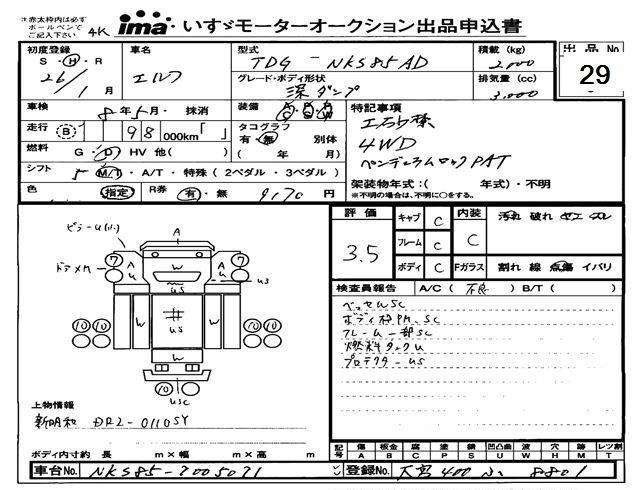 ※赤太枠内は必ず
ボールペンで
ご記入下さい。
4K
ima いすゞモーターオークション出品申込書
初度登録
S・H・R
26/1月
車名
エルフ
型式
TDG-NKS85AD
グレード・ボディ形状
深ダンプ
積載(kg)
2,000
排気量(cc)
3,000
出品No
29
車検
8年5月・抹消
装備
走行
B 98 000km「」
タコグラフ
有・無 別体
(年 月)
燃料
G・D・HV 他( )
シフト
5 M/T・A/T・特殊(2ペダル・3ペダル)
色
指定
R券 有・無 9,170円
特記事項
4WD
ペンデュラムロックPAT
架装物年式:( 年式)・不明
※不明の場合は、不明に○をする。
評価
3.5
キャブ C
フレーム C
ボディ C
内装
C
汚れ 破れ コゲ スレ
Fガラス 割れ 線 点傷 イバリ
検査員報告 A/C(不良) B/T( )
ベッセルSC
ボディ枠PM.SC
フレーム一部SC
燃料タンクU
プロテクターUS
ピラーU(小)
ドアメクレ
A
7
A
U
W
US
7
A
U
US
W
US
W
W
10 10
10 10
10
USC
上物情報
新明和 DR2-0110SY
ボディ内寸約 長 m×幅 m×高 m
記号
傷 板金 腐 塗 錆 凹凸曲 波 穴 跡 レツ割
A B C P S U W H M T
車台No.
NKS85-7005071
登録No.
大宮400 ぬ 8801